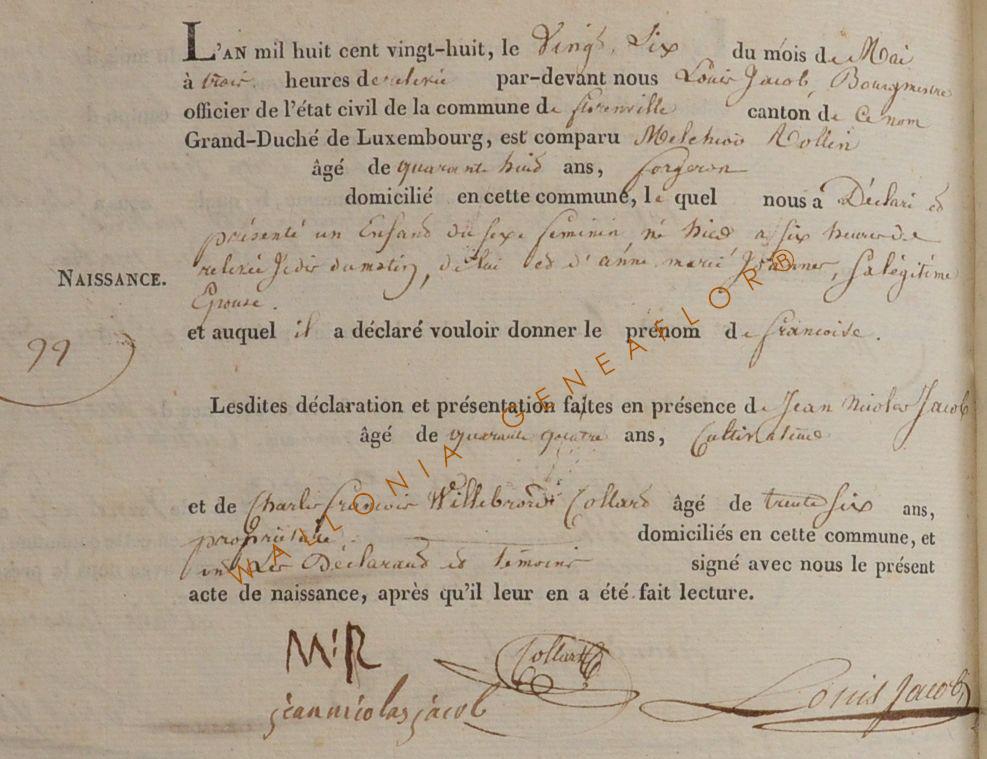 L'AN mil huit cent vingt-huit, le Vingt Six du mois de Mai
à trois heures de relevée par-devant nous Louis Jacob, Bourgmestre
officier de l'état civil de la commune de florenville canton de Ce nom
Grand-Duché de Luxembourg, est comparu Melchior Rollin
âgé de quarante huit ans, forgeron
domicilié en cette commune, le quel nous a Déclaré et
présenté un Enfant du sexe féminin né hier a six heures de
relevée du matin, de lui et d'anne marie sa légitime
Epouse.
NAISSANCE.
et auquel il a déclaré vouloir donner le prénom de francoise.
99
Lesdites déclaration et présentation faites en présence de Jean Nicolas Jacob
âgé de quarante quatre ans, Cultivateur
et de Charle francois Willebrord Collard âgé de trente six ans,
propriétaire domiciliés en cette commune, et
ont Les Déclarant et témoins signé avec nous le présent
acte de naissance, après qu'il leur en a été fait lecture.
M:R
Collard
jean nicolas jacob
Louis Jacob
WALLONIA GENEAFLOR®